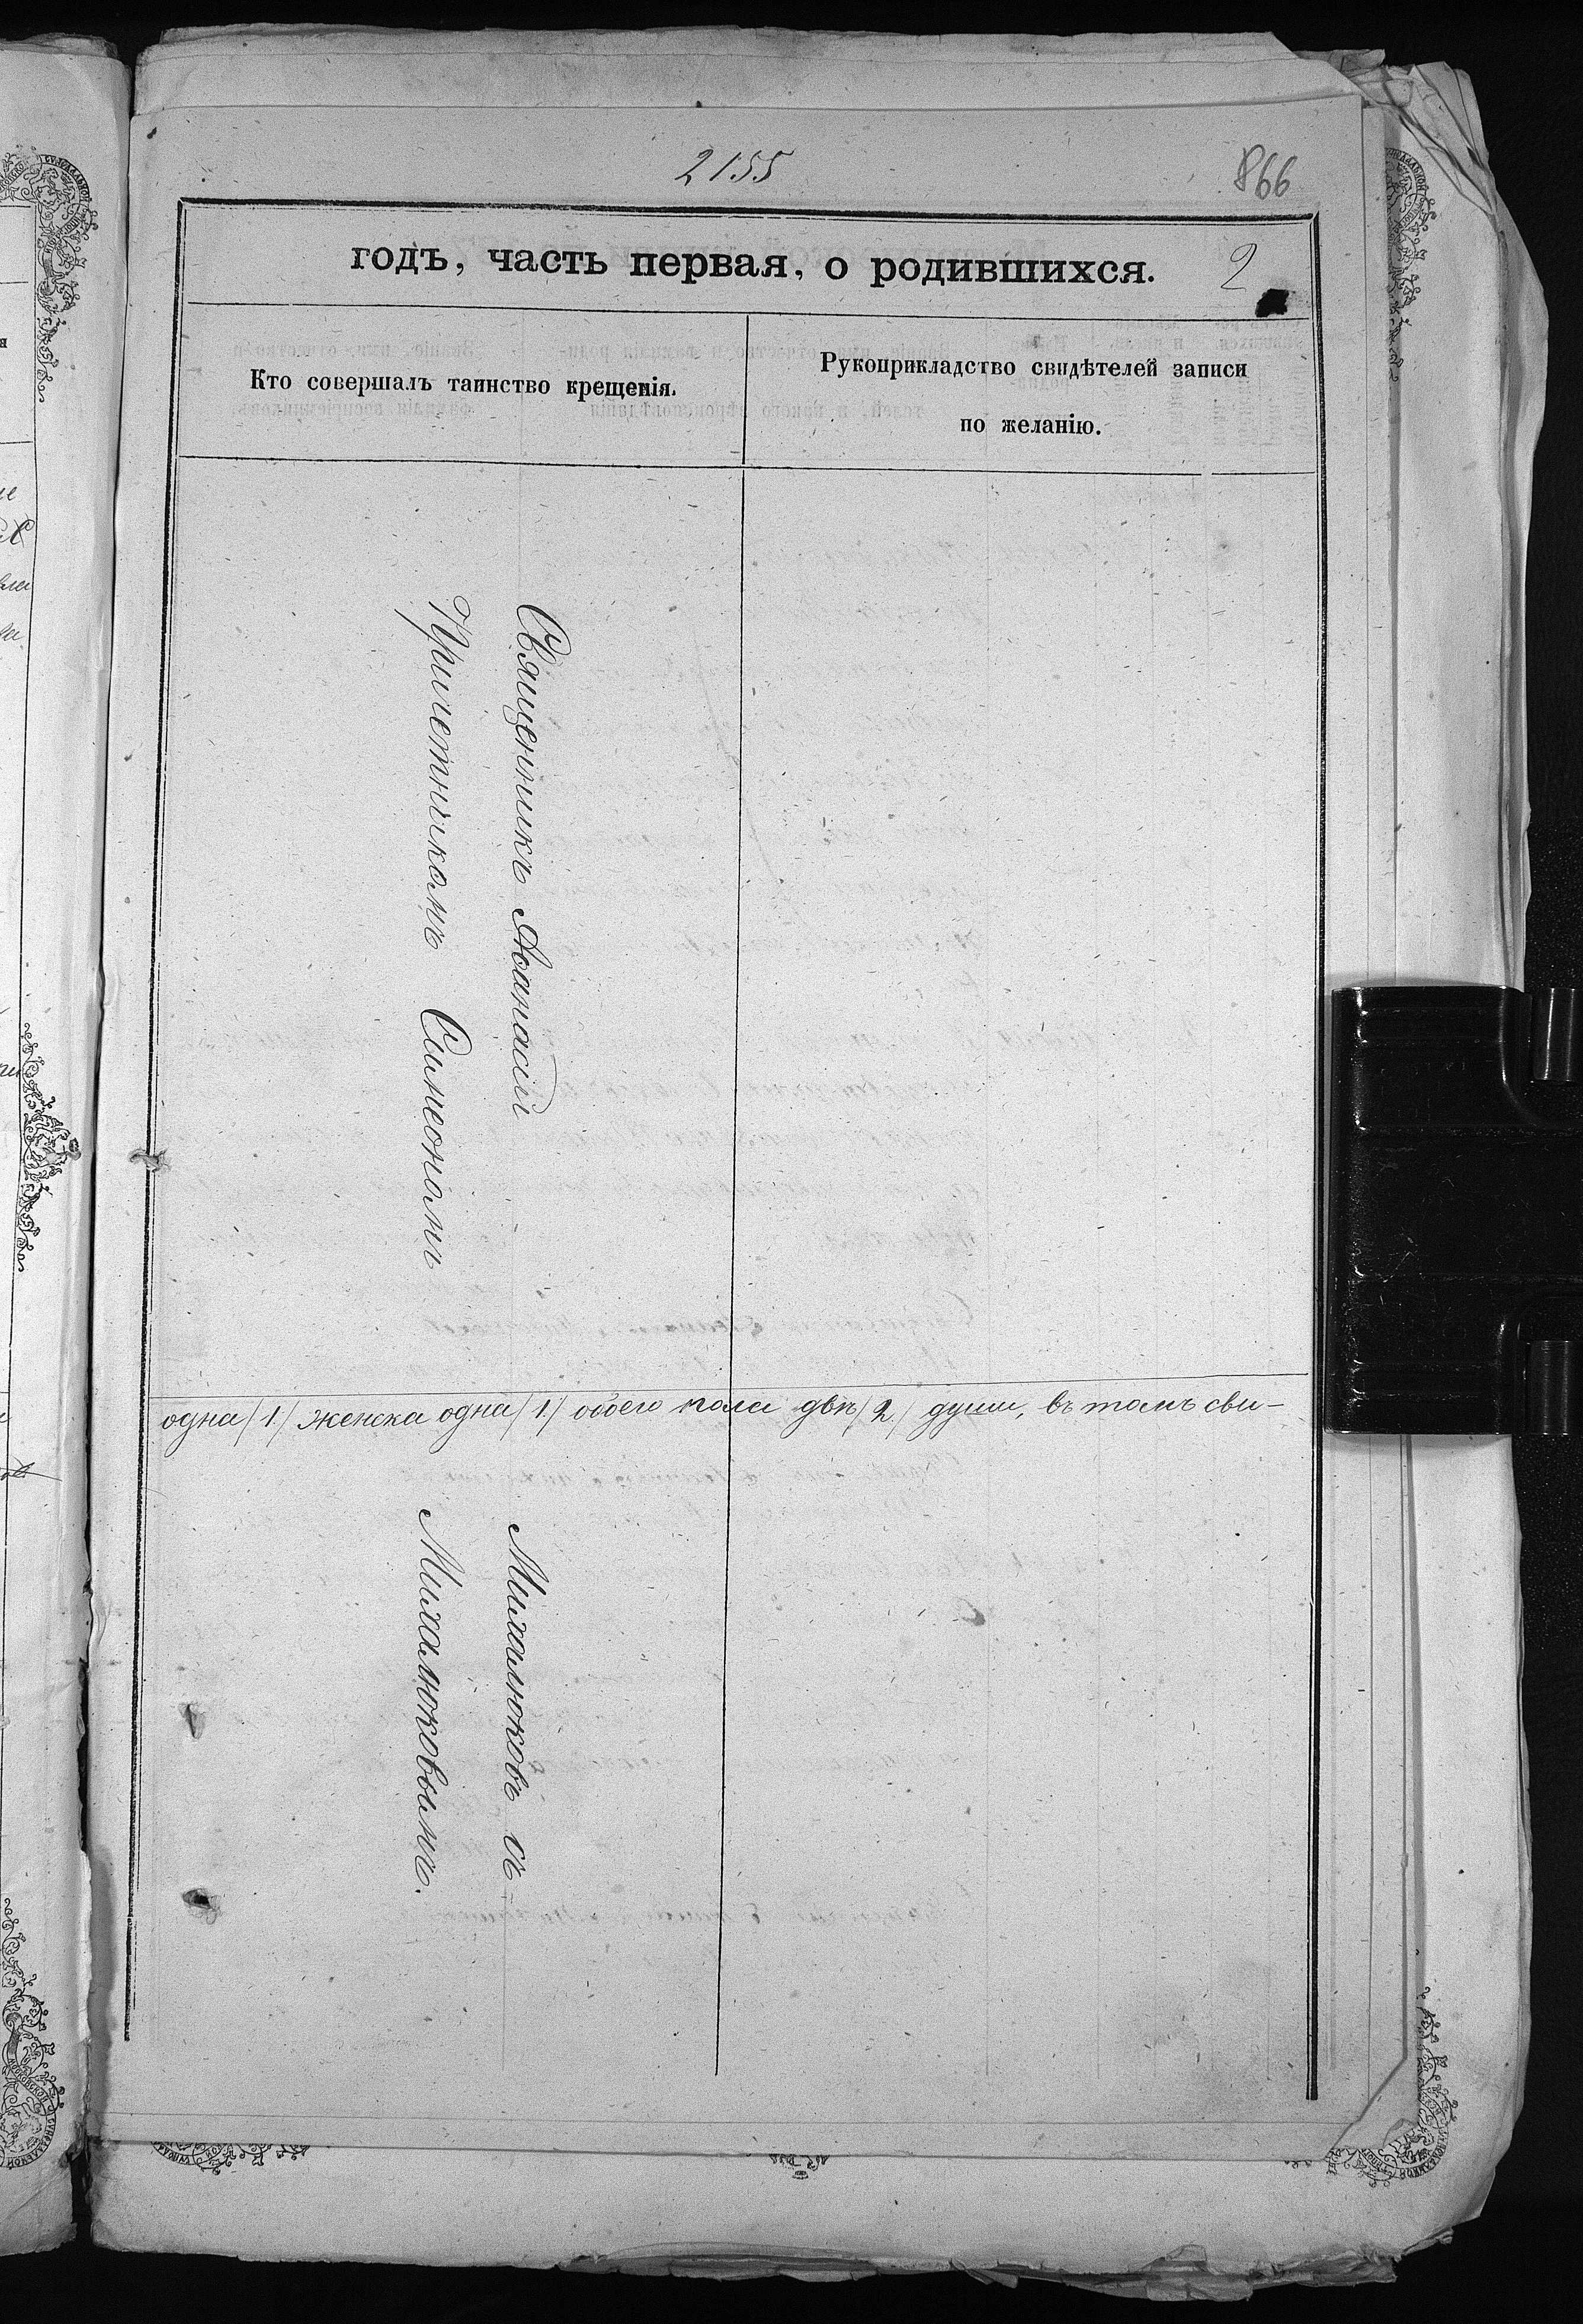 2155
866
годъ, часть первая, о родившихся.
2
Кто совершалъ таинство крещенія.
Рукоприкладство свидѣтелей записи
по желанію.
Священникъ Аѳанасій
Причетникомъ Симеономъ
одна /1./ женска одна /1./ обоего пола двѣ /2./ души, въ томъ сви-
Михалюковъ съ
Михалюковымъ.